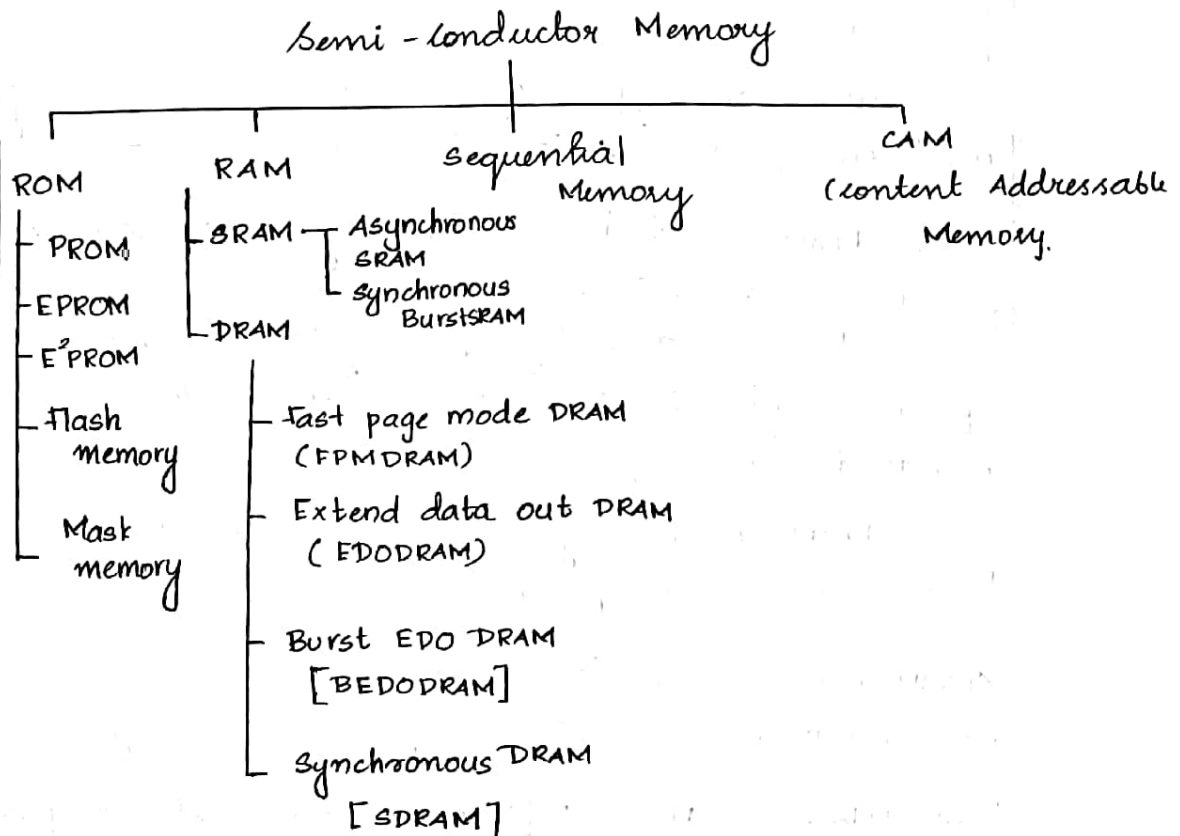 Semi-conductor Memory
ROM
PROM
EPROM
E²PROM
Flash
memory
Mask
memory
RAM
SRAM
Asynchronous
SRAM
Synchronous
BurstSRAM
DRAM
Fast page mode DRAM
(FPMDRAM)
Extend data out DRAM
(EDODRAM)
Burst EDO DRAM
[BEDODRAM]
Synchronous DRAM
[SDRAM]
Sequential
Memory
CAM
(Content Addressable
Memory.